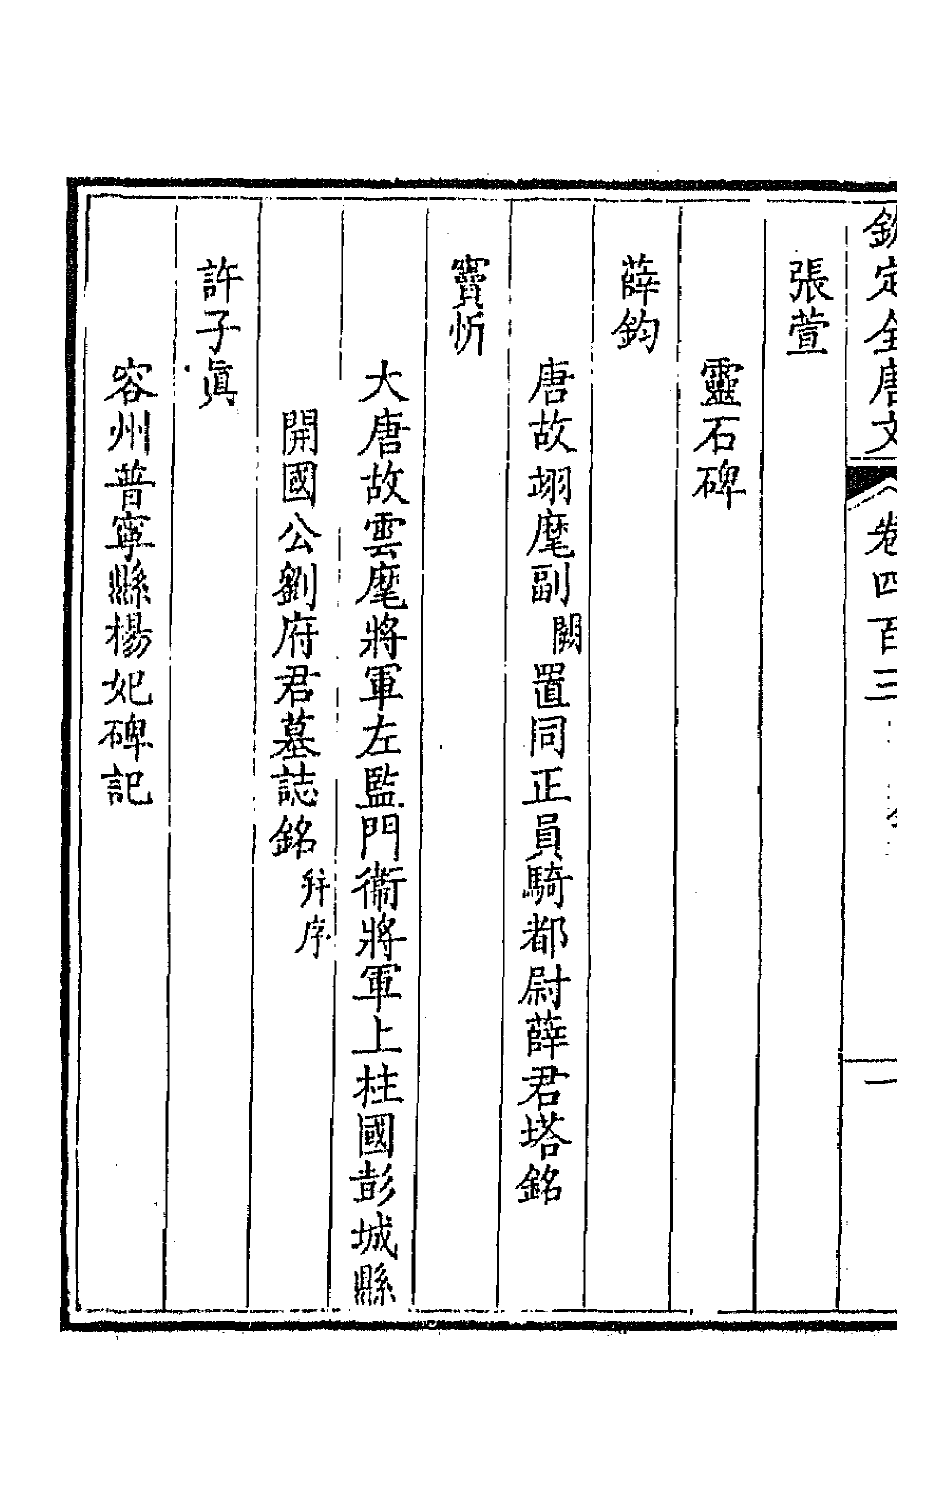 欽定全唐文 卷四百三 一
張萱
靈石碑
薛鈞
唐故翊麾副闕置同正員騎都尉薛君塔銘
竇忻
大唐故雲麾將軍左監門衞將軍上柱國彭城縣
開國公劉府君墓誌銘幷序
許子眞
容州普寧縣楊妃碑記